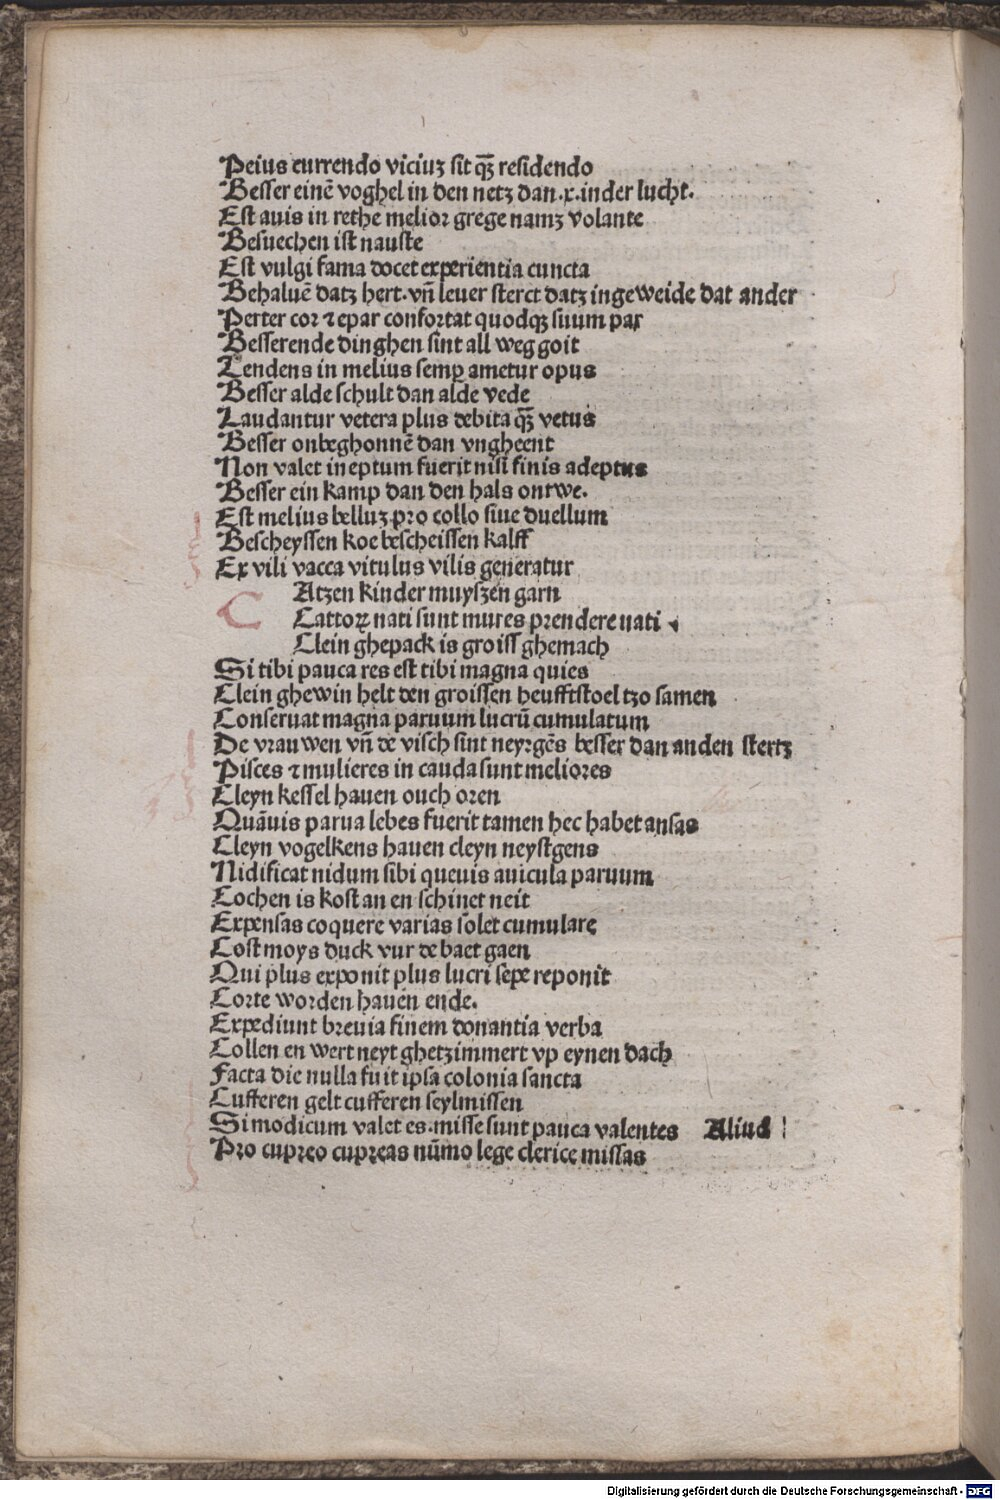 Peius currendo viciuꝫ sit qꝫ̄ residendo
Besser einē voghel in den netz dan .x. in der lucht.
Est auis in rethe melior grege namꝫ volante
Besuechen ist nauste
Est vulgi fama docet experientia cuncta
Behaluē datz hert. vñ leuer sterct datz ingeweide dat ander
Perter cor ⁊ epar confortat quodqꝫ suum par
Besserende dinghen sint all weg goit
Tendens in melius semꝑ ametur opus
Besser alde schult dan alde vede
Laudantur vetera plus debita qꝫ̄ vetus
Besser onbeghonnē dan vngheent
Non valet ineptum fuerit nisi finis adeptus
Besser ein kamp dan den hals ontwe.
Est melius belluꝫ pro collo siue duellum
Bescheyssen koe bescheissen kalff
Ex vili vacca vitulus vilis generatur
C Atzen kinder muyszen garn
Cattoꝝ nati sunt mures prendere nati
Clein ghepack is groiss ghemach
Si tibi pauca res est tibi magna quies
Clein ghewin helt den groissen heufftstoel tzo samen
Conseruat magna paruum lucrū cumulatum
De vrauwen vñ de visch sint neyrgēs besser dan an den stertz
Pisces ⁊ mulieres in cauda sunt meliores
Cleyn kessel hauen ouch oren
Quāuis parua lebes fuerit tamen hec habet ansas
Cleyn vogelkens hauen cleyn neystgens
Nidificat nidum sibi queuis auicula paruum
Cochen is kost an en schinet neit
Expensas coquere varias solet cumulare
Cost moys duck vur de baet gaen
Qui plus exponit plus lucri sepe reponit
Corte worden hauen ende.
Expediunt breuia finem donantia verba
Collen en wert neyt ghetzimmert vp eynen dach
Facta die nulla fuit ipsa colonia sancta
Cufferen gelt cufferen seylmissen
Si modicum valet es. misse sunt pauca valentes Aliud
Pro cupreo cupreas nūmo lege clerice missas
Digitalisierung gefördert durch die Deutsche Forschungsgemeinschaft - DFG